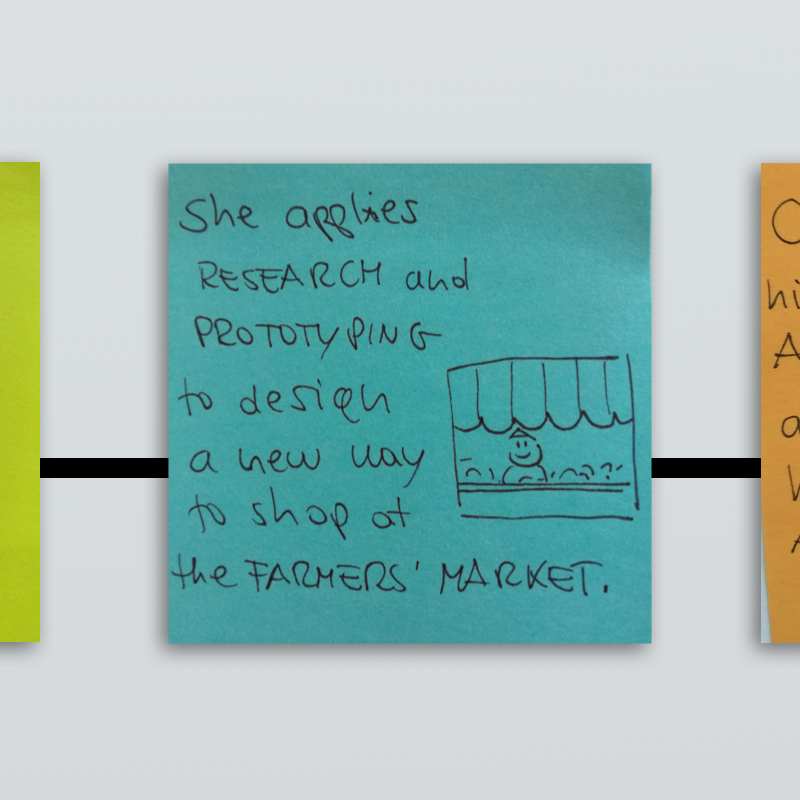 She applies
RESEARCH and
PROTOTYPING
to design
a new way
to shop at
the FARMERS' MARKET.